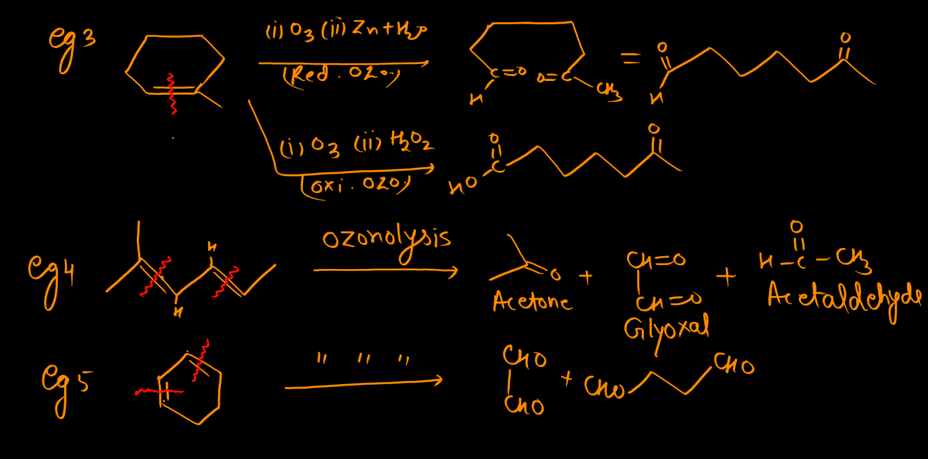 eg3 (i) O3 (ii) Zn+H2O
(Red. OZO.)
C=O O=C
H CH3
=
O O
H
(i) O3 (ii) H2O2
(oxi. OZO.)
O O
HO C
eg4 H H ozonolysis
O + CH=O + O
CH=O H-C-CH3
Acetone Glyoxal Acetaldehyde
eg5 " " "
CHO + CHO CHO
CHO